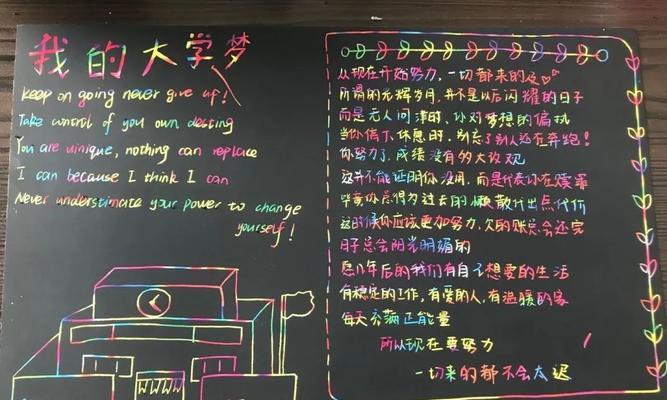 我的大学梦
Keep on going never give up!
Take control of you own destiny
You are uinique, nothing can replace
I can because I think I can
Never understimate your power to change
yourself!
从现在开始努力,一切都来的及
所谓的光辉岁月,并不是以后闪耀的日子
而是无人问津时,你对梦想的偏执
当你停下休息时,别忘了别人还在奔跑!
你努力了,成绩没有的大改观
这并不能证明你没用,而是代表你在赎罪
毕竟你总得为过去的懒散付出点代价
这时候你应该更加努力,欠的账总会还完
日子总会阳光明媚的
愿几年后的我们有自己想要的生活
有稳定的工作,有爱的人,有温暖的家
每天充满正能量
所以现在要努力
一切来的都不会太迟